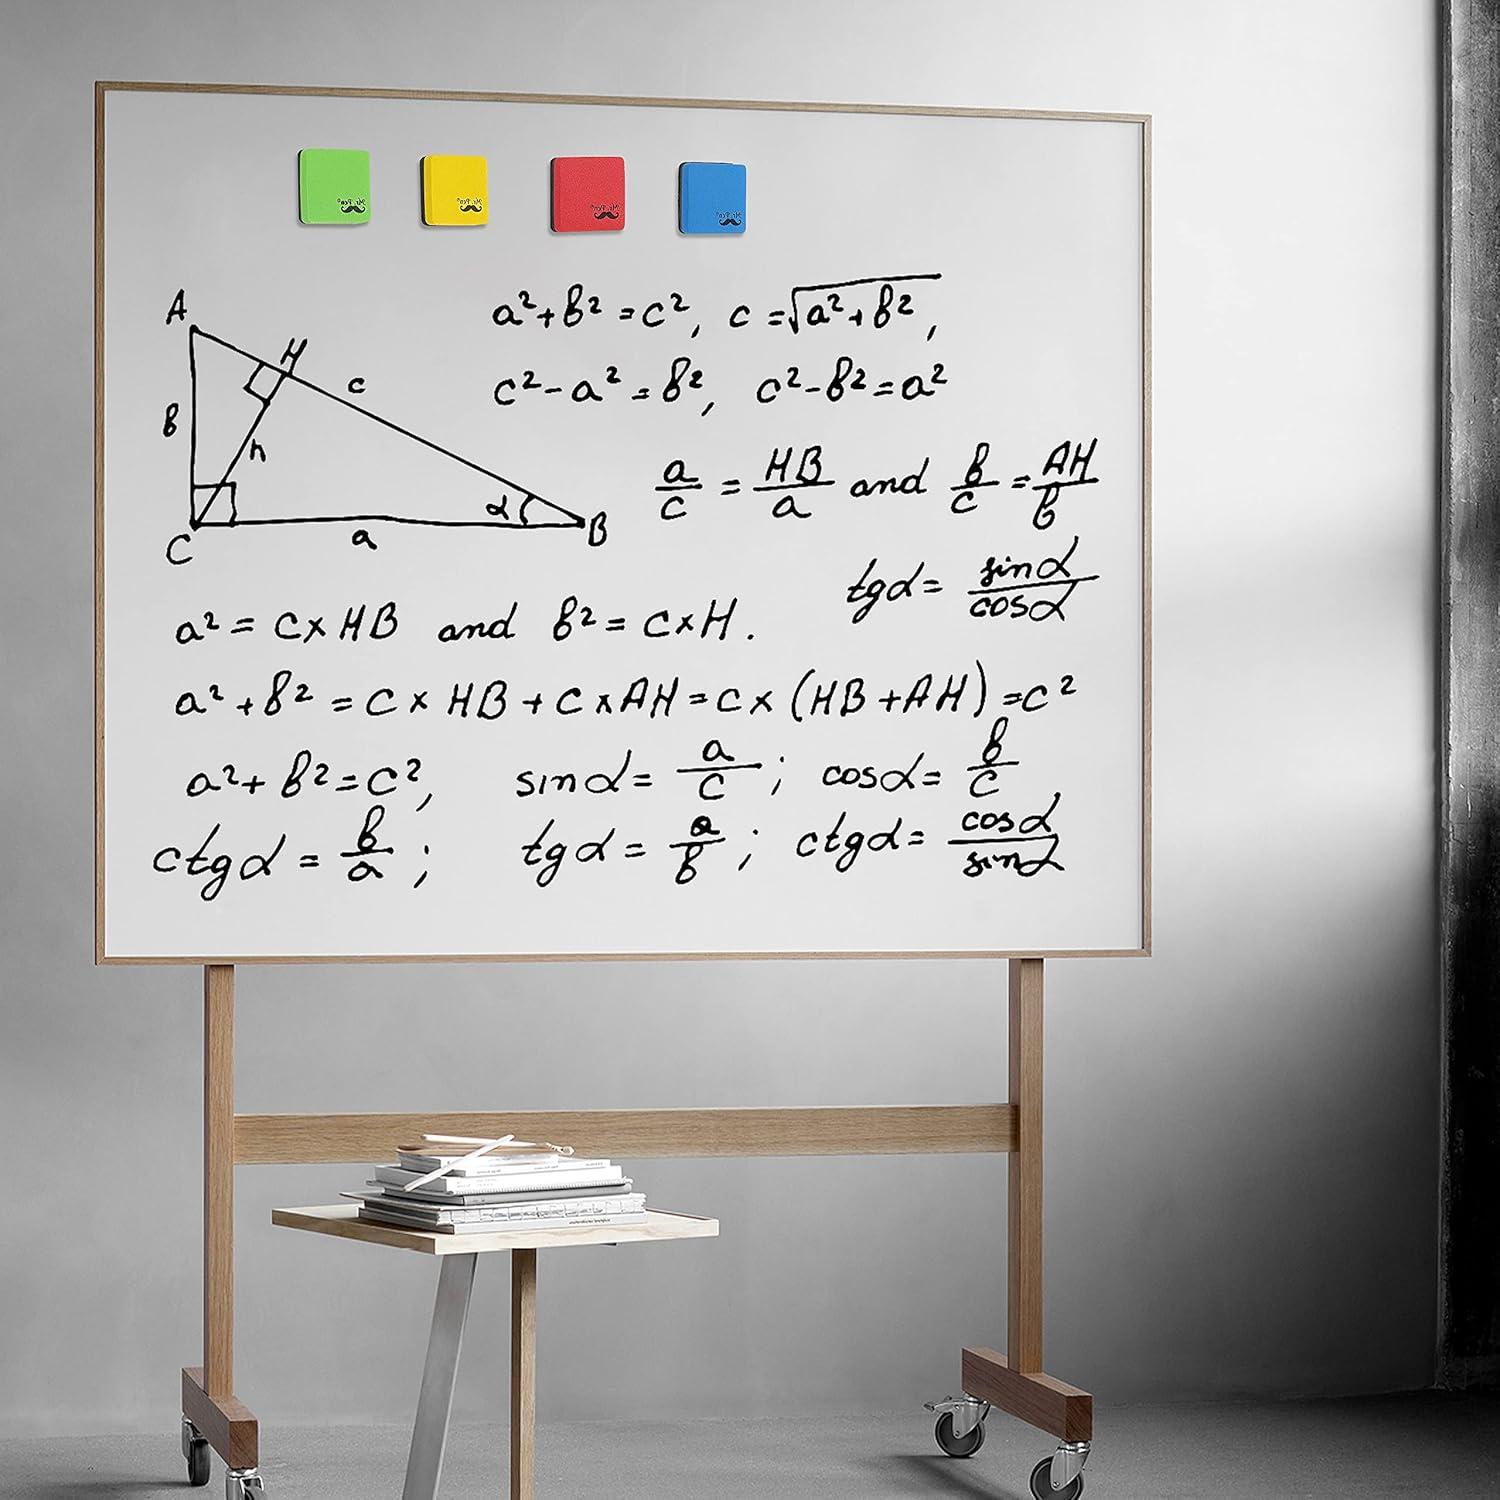 Mr. Pen® Mr. Pen® Mr. Pen® Mr. Pen®
A
H
c
b
h
α
B
C
a
a²+b²=c², c=√a²+b²,
c²-a²=b², c²-b²=a²
a/c = HB/a and b/c = AH/b
tgα = sinα/cosα
a² = c×HB and b² = c×H.
a²+b² = c×HB+c×AH=c×(HB+AH)=c²
a²+b²=c², sinα= a/c; cosα= b/c,
ctgα = b/a; tgα = a/b; ctgα= cosα/sinα